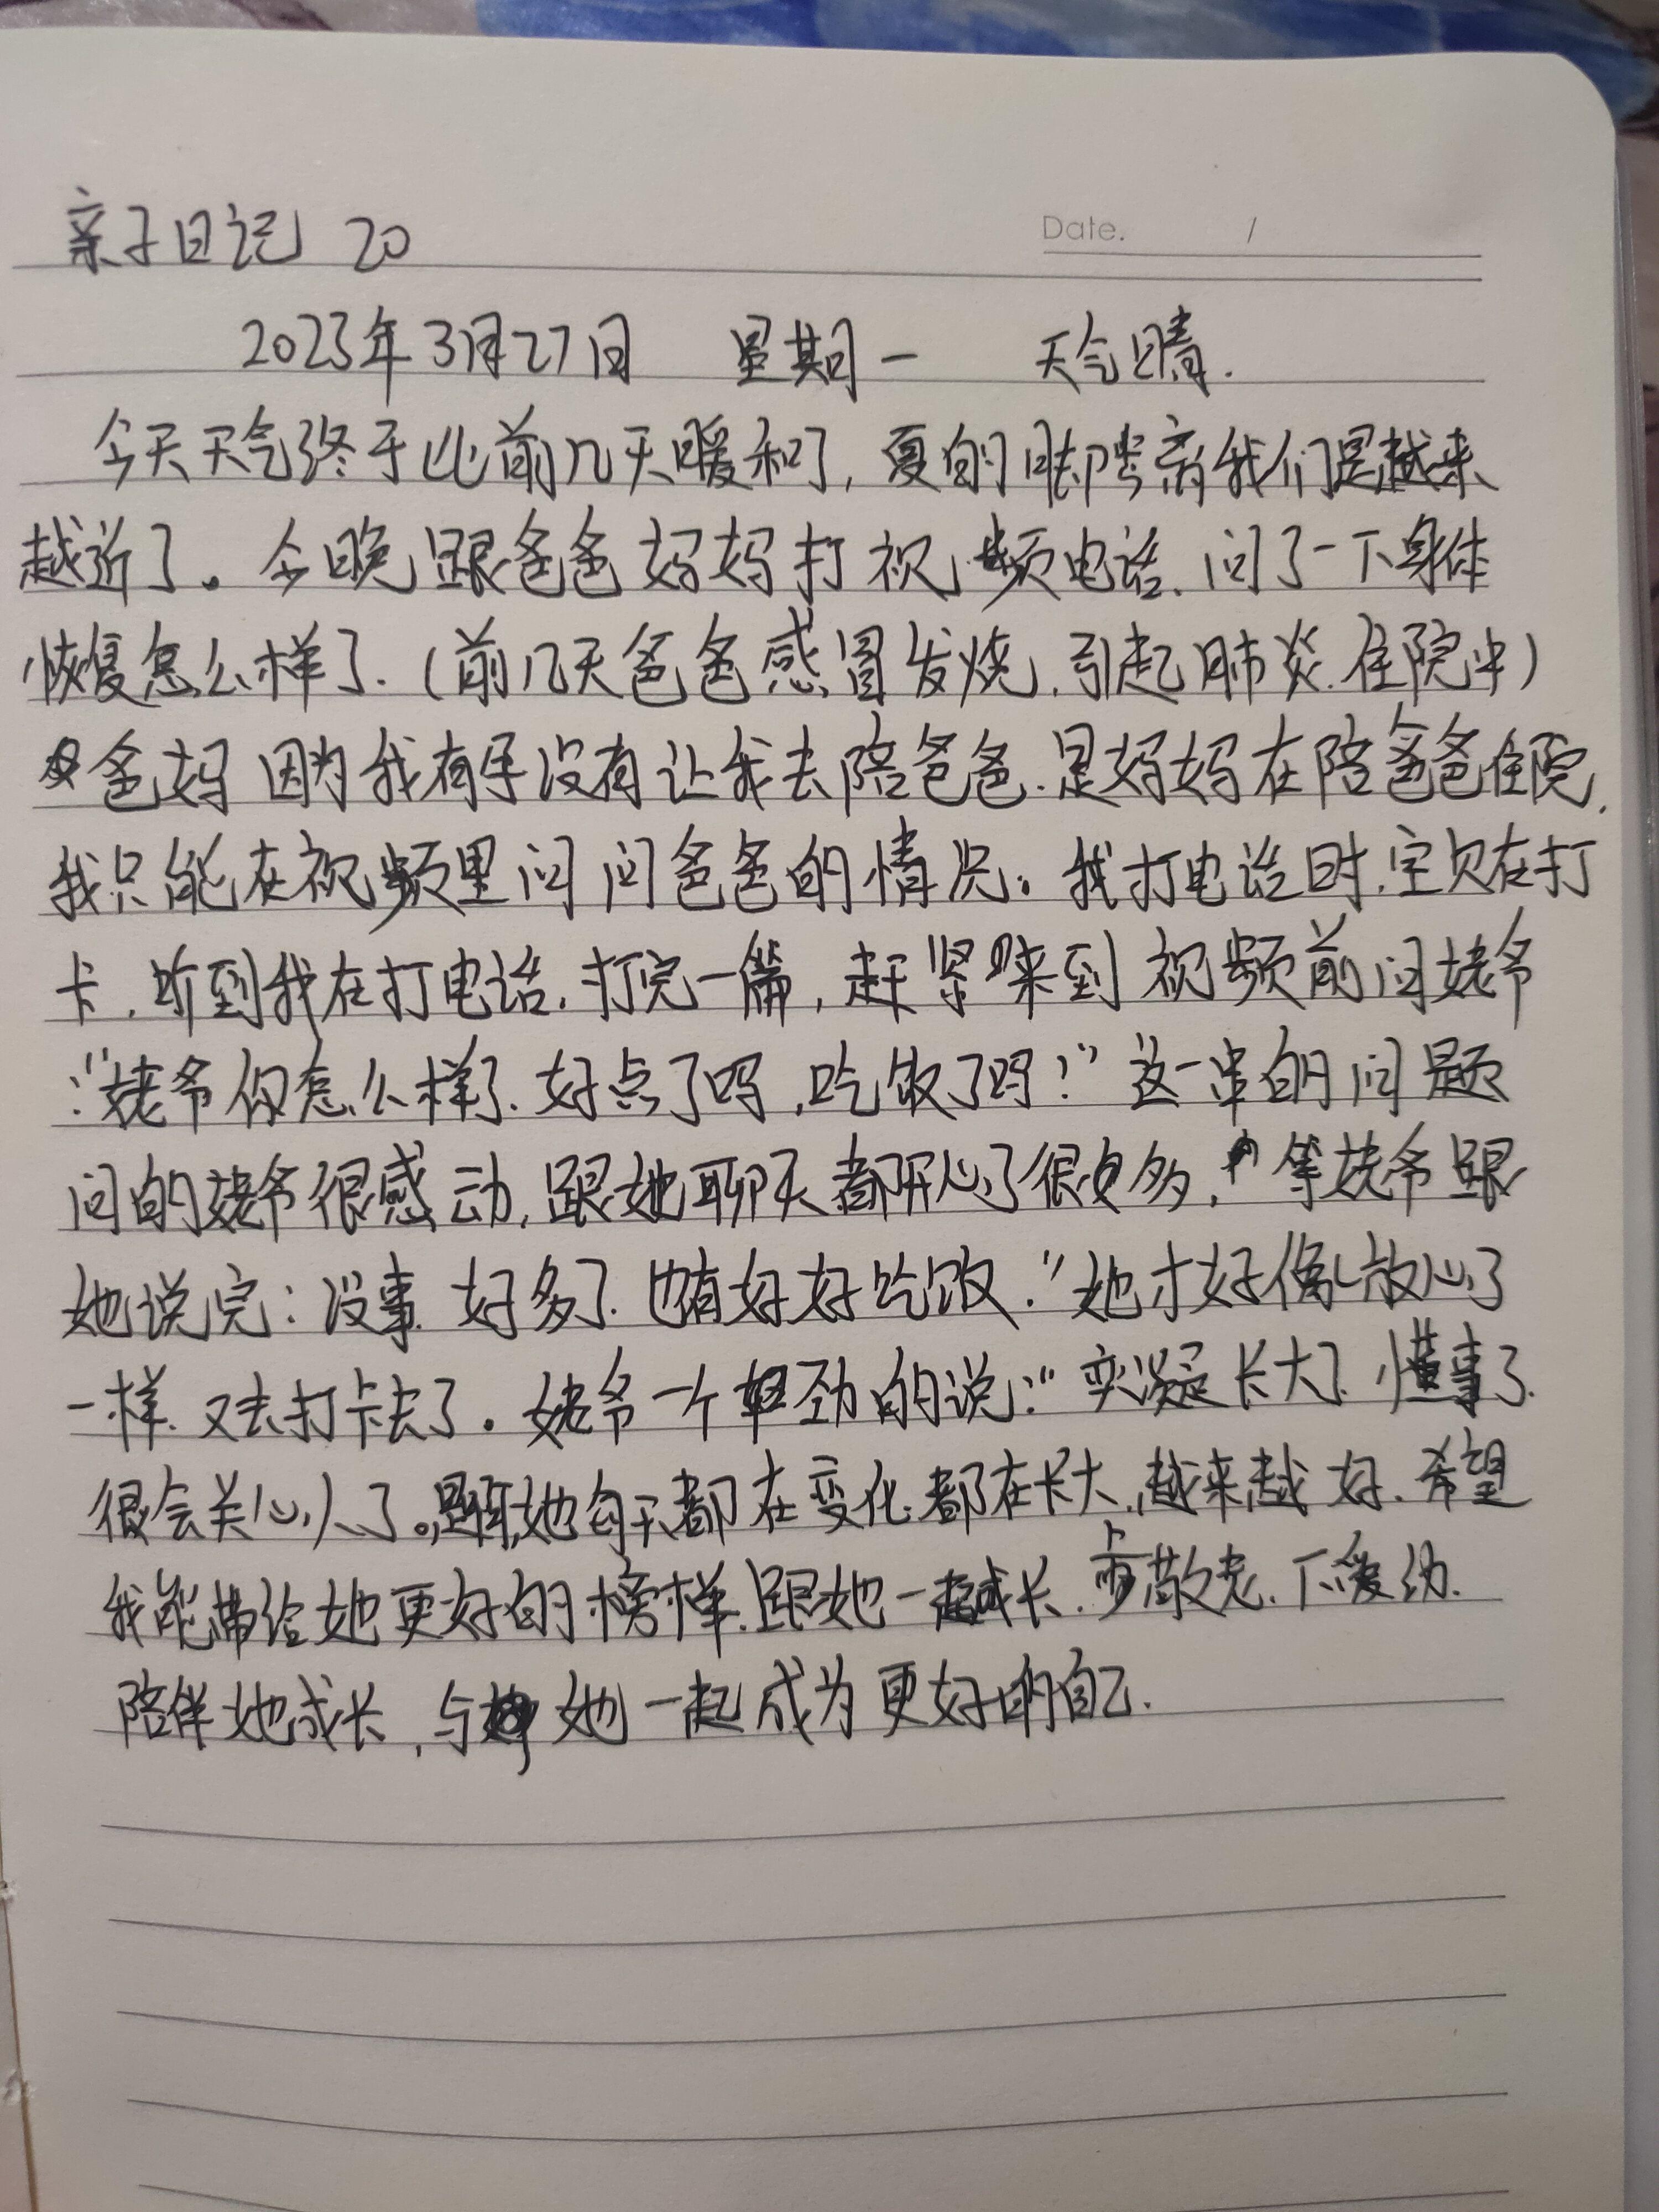 亲子日记 20
Date. /
2023年3月27日 星期一 天气晴.
今天天气终于比前几天暖和了, 夏的脚步离我们是越来
越近了。今晚跟爸爸妈妈打视频电话. 问了一下身体
恢复怎么样了. (前几天爸爸感冒发烧, 引起肺炎. 住院中)
爸妈因为我有孕没有让我去陪爸爸. 是妈妈在陪爸爸住院.
我只能在视频里问问爸爸的情况。我打电话时. 宝贝在打
卡. 听到我在打电话. 打完一篇, 赶紧来到视频前问姥爷
:“姥爷你怎么样了. 好点了吗, 吃饭了吗?”这一串的问题
问的姥爷很感动, 跟她聊天都开心了很多, 等姥爷跟
她说完: 没事. 好多了. 也有好好吃饭.”她才好像放心了
一样. 又去打卡去了。姥爷一个轻劲的说:“奕凝长大了. 懂事了.
很会关心人了。是啊, 她每天都在变化. 都在长大, 越来越好. 希望
我能带给她更好的榜样. 跟她一起成长. 上敬老. 下爱幼.
陪伴她成长, 与她一起成为更好的自己.